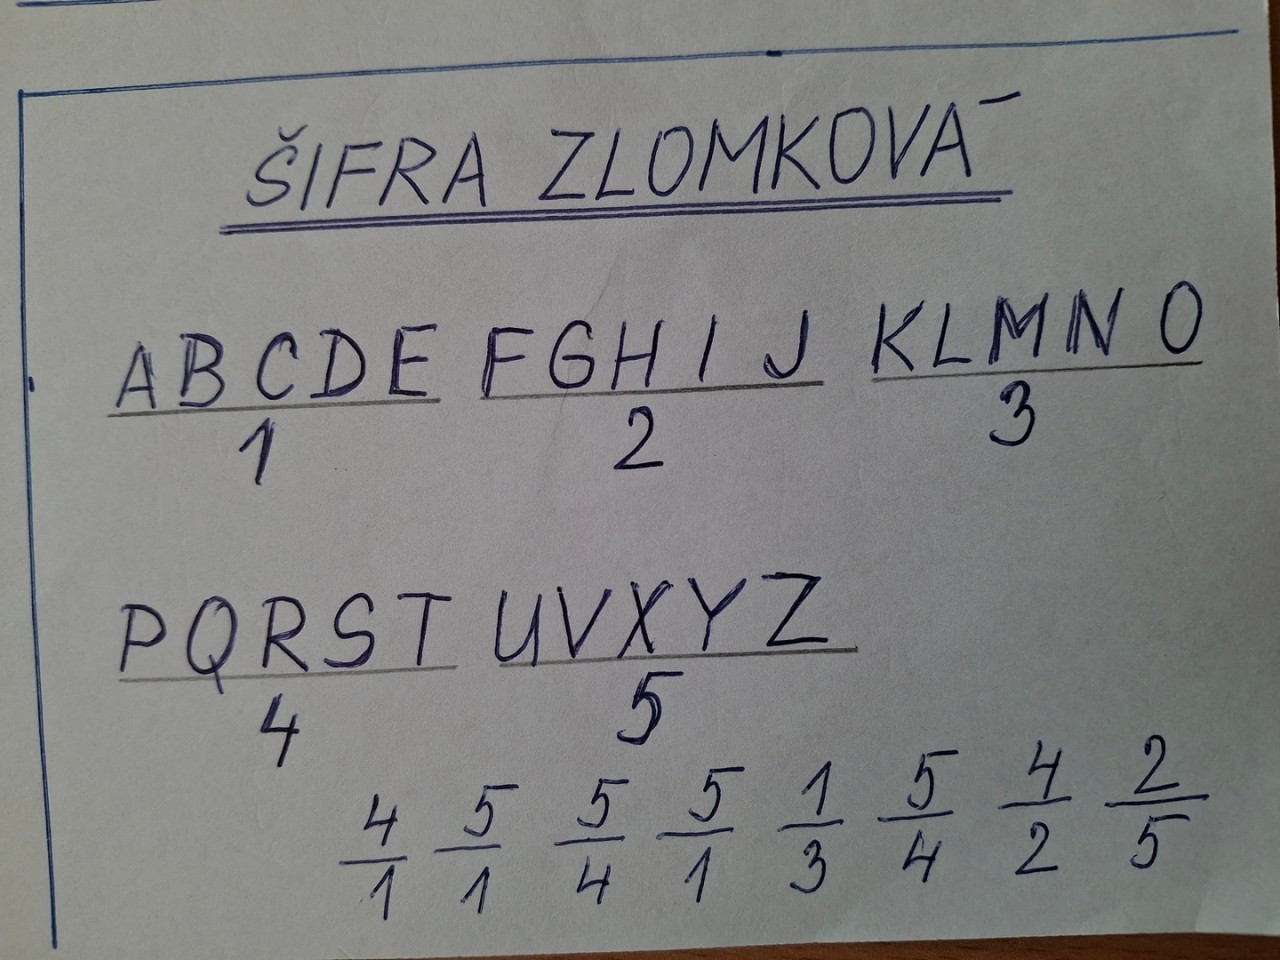 ŠIFRA ZLOMKOVÁ
ABCDE FGHIJ KLMNO
1 2 3
PQRST UVXYZ
4 5
4/1 5/1 5/4 5/1 1/3 5/4 4/2 2/5